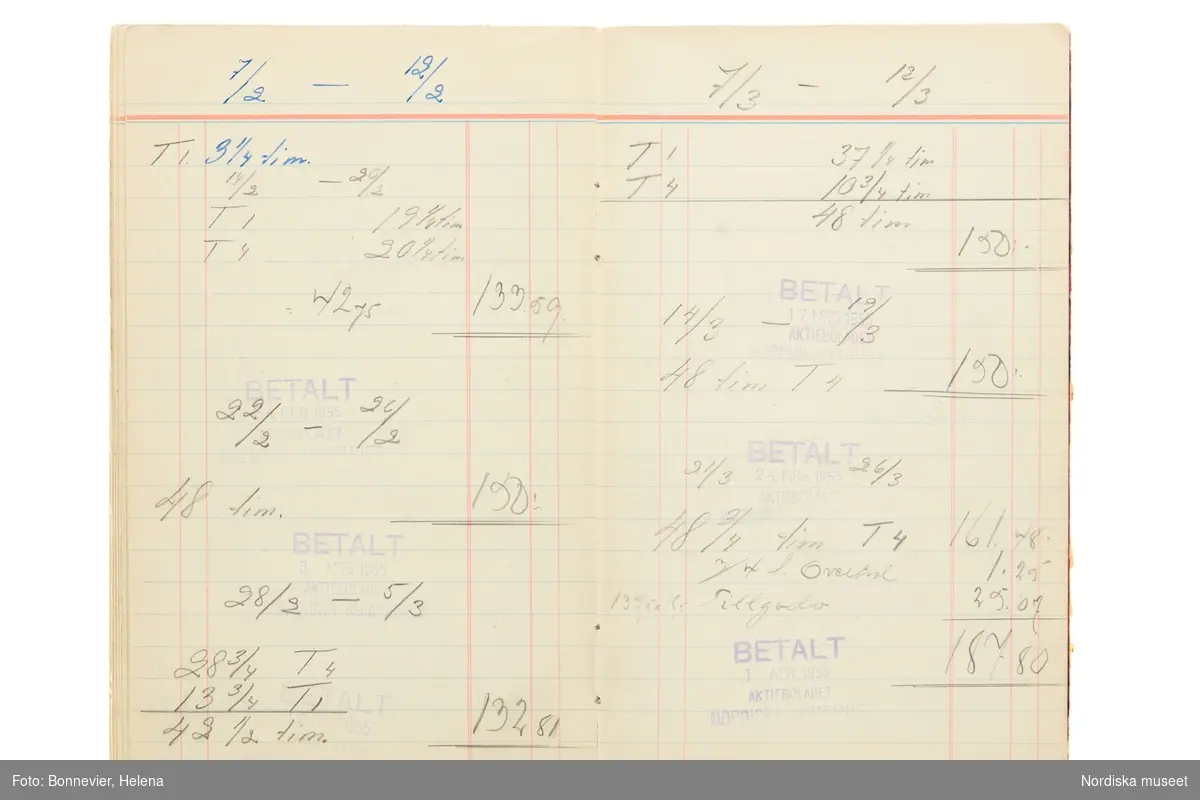 7/2 — 12/2
T 1. 3 1/4 tim.
14/2 — 20/2
T 1 19 1/4 tim
T 4 20 1/4 tim
= 42 75 133.59.
BETALT
1955
22/2 — 26/2
48 tim. 150:-
BETALT
3. MRS 1955
AKTIEBOLAGET
28/2 — 5/3
28 3/4 T 4
13 3/4 T 1
BETALT
42 1/2 tim. 132,81
7/3 — 12/3
T 1 37 1/4 tim
T 4 10 3/4 tim
48 tim
150:-
BETALT
17 MRS 1955
AKTIEBOLAGET
14/3 — 19/3
48 tim T 4 150:-
BETALT
21/3 26/3
MRS 1955
AKTIEBOLAGET
48 3/4 tim T 4 161.48-
1.25
Tillgodo 25.07
187 80
BETALT
1 APR 1955
AKTIEBOLAGET
NORDISKA
Foto: Bonnevier, Helena
Nordiska museet